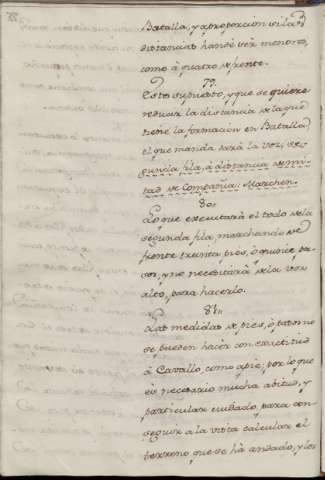 Batalla, y aproporcion si las
distancias handé ser menores,
como á quatro de frente.
79.
Esto supuesto, y que se quiere
reducir la distancia de la que
tiene la formacion en Batalla
el que manda dará la voz, se-
gunda fila, á distancia de mi-
tad de Compañia: Marchen.
80.
Lo que executará el todo de la
segunda fila, marchando de
frente treinta pies, ó quince pa-
sos, y no necesitará de la voz
alto, para hacerlo.
81.
Las medidas de pies, ó pasos no
se pueden hacér con exactitud
á Cavallo, como apie; por lo que
es necesario mucho abito, y
particular cuidado, para con-
seguir a la vista calcular el
terreno que se há andado, y los